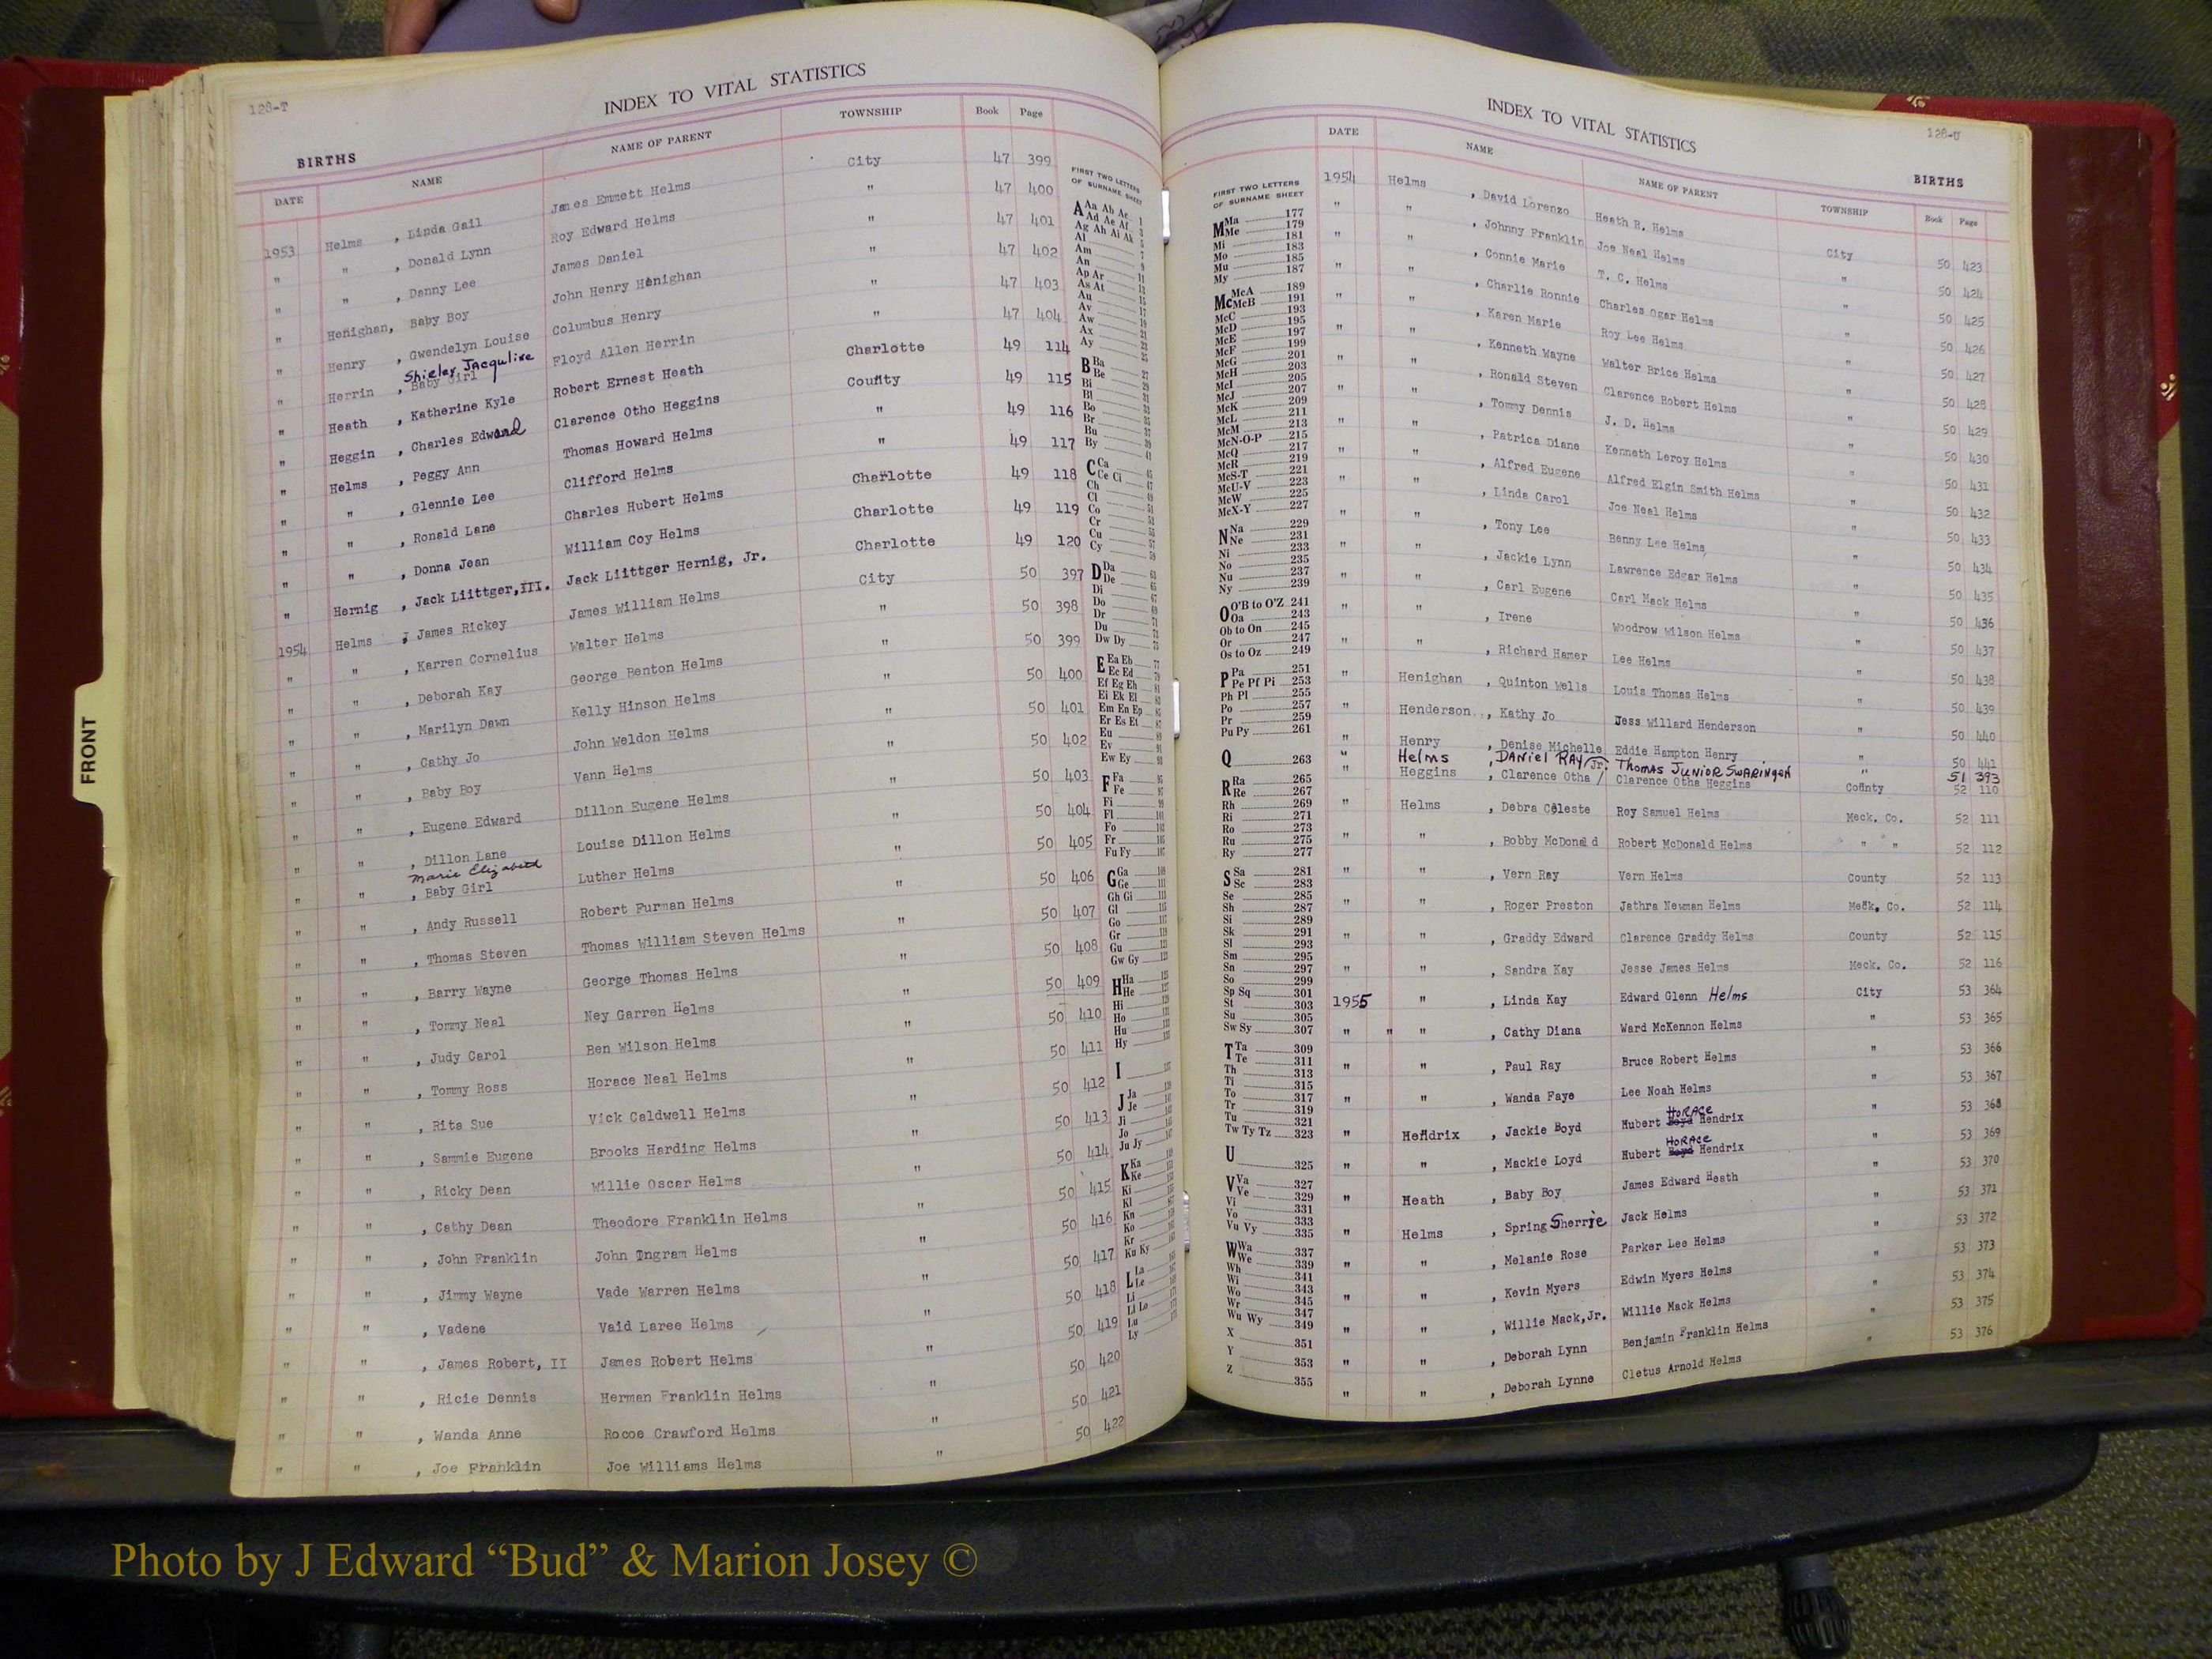 128-T
INDEX TO VITAL STATISTICS
BIRTHS
DATE NAME NAME OF PARENT TOWNSHIP Book Page
1953 Helms , Linda Gail James Emmett Helms City 47 399
" " , Donald Lynn Roy Edward Helms " 47 400
" " , Danny Lee James Daniel " 47 401
" Henighan, Baby Boy John Henry Henighan " 47 402
" Henry , Gwendelyn Louise Columbus Henry " 47 403
Shirley Jacquline
" Herrin , Baby Girl Floyd Allen Herrin " 47 404
" Heath , Katherine Kyle Robert Ernest Heath Charlotte 49 114
" Heggin , Charles Edward Clarence Otho Heggins County 49 115
" Helms , Peggy Ann Thomas Howard Helms " 49 116
" " , Glennie Lee Clifford Helms " 49 117
" " , Ronald Lane Charles Hubert Helms Charlotte 49 118
" " , Donna Jean William Coy Helms Charlotte 49 119
" Hernig , Jack Liittger,III. Jack Liittger Hernig, Jr. Charlotte 49 120
1954 Helms , James Rickey James William Helms City 50 397
" " , Karren Cornelius Walter Helms " 50 398
" " , Deborah Kay George Benton Helms " 50 399
" " , Marilyn Dawn Kelly Hinson Helms " 50 400
" " , Cathy Jo John Weldon Helms " 50 401
" " , Baby Boy Vann Helms " 50 402
" " , Eugene Edward Dillon Eugene Helms " 50 403
" " , Dillon Lane Louise Dillon Helms " 50 404
Marie Elizabeth
" " , Baby Girl Luther Helms " 50 405
" " , Andy Russell Robert Furman Helms " 50 406
" " , Thomas Steven Thomas William Steven Helms " 50 407
" " , Barry Wayne George Thomas Helms " 50 408
" " , Tommy Neal Ney Garren Helms " 50 409
" " , Judy Carol Ben Wilson Helms " 50 410
" " , Tommy Ross Horace Neal Helms " 50 411
" " , Rita Sue Vick Caldwell Helms " 50 412
" " , Sammie Eugene Brooks Harding Helms " 50 413
" " , Ricky Dean Willie Oscar Helms " 50 414
" " , Cathy Dean Theodore Franklin Helms " 50 415
" " , John Franklin John Ingram Helms " 50 416
" " , Jimmy Wayne Vade Warren Helms " 50 417
" " , Vadene Vaid Laree Helms " 50 418
" " , James Robert, II James Robert Helms " 50 419
" " , Ricie Dennis Herman Franklin Helms " 50 420
" " , Wanda Anne Rocoe Crawford Helms " 50 421
" " , Joe Franklin Joe Williams Helms " 50 422
FRONT
FIRST TWO LETTERS
OF SURNAME SHEET
A Aa Ab Ac
Ad Ae Af
Ag Ah Ai Ak
Al
Am
An
Ap Ar
As At
Au
Av
Aw
Ax
Ay
B Ba
Be
Bi
Bl
Bo
Br
Bu
By
C Ca
Ce Ci
Ch
Cl
Co
Cr
Cu
Cy
D Da
De
Di
Do
Dr
Du
Dw Dy
E Ea Eb
Ec Ed
Ef Eg Eh
Ei Ek El
Em En Ep
Er Es Et
Eu
Ev
Ew Ey
F Fa
Fe
Fi
Fl
Fo
Fr
Fu Fy
G Ga
Ge
Gh Gi
Gl
Go
Gr
Gu
Gw Gy
H Ha
He
Hi
Ho
Hu
Hy
I
J Ja
Je
Ji
Jo
Ju Jy
K Ka
Ke
Ki
Kl
Kn
Ko
Kr
Ku Ky
L La
Le
Li
Ll Lo
Lu
Ly
128-U
INDEX TO VITAL STATISTICS
BIRTHS
FIRST TWO LETTERS
OF SURNAME SHEET
M Ma 177
Me 179
Mi 181
Mo 183
Mu 185
My 187
Mc McA 189
McB 191
McC 193
McD 195
McE 197
McF 199
McG 201
McH 203
McI 205
McJ 207
McK 209
McL 211
McM 213
McN-O-P 215
McQ 217
McR 219
McS-T 221
McU-V 223
McW 225
McX-Y 227
N Na 229
Ne 231
Ni 233
No 235
Nu 237
Ny 239
O O'B to O'Z 241
Oa 243
Ob to On 245
Or 247
Os to Oz 249
P Pa 251
Pe Pf Pi 253
Ph Pl 255
Po 257
Pr 259
Pu Py 261
Q 263
R Ra 265
Re 267
Rh 269
Ri 271
Ro 273
Ru 275
Ry 277
S Sa 281
Sc 283
Se 285
Sh 287
Si 289
Sk 291
Sl 293
Sm 295
Sn 297
So 299
Sp Sq 301
St 303
Su 305
Sw Sy 307
T Ta 309
Te 311
Th 313
Ti 315
To 317
Tr 319
Tu 321
Tw Ty Tz 323
U 325
V Va 327
Ve 329
Vi 331
Vo 333
Vu Vy 335
W Wa 337
We 339
Wh 341
Wi 343
Wo 345
Wr 347
Wu Wy 349
X 351
Y 353
Z 355
DATE NAME NAME OF PARENT TOWNSHIP Book Page
1954 Helms , David Lorenzo Heath R. Helms City 50 423
" " , Johnny Franklin Joe Neal Helms " 50 424
" " , Connie Marie T. C. Helms " 50 425
" " , Charlie Ronnie Charles Ogar Helms " 50 426
" " , Karen Marie Roy Lee Helms " 50 427
" " , Kenneth Wayne Walter Brice Helms " 50 428
" " , Ronald Steven Clarence Robert Helms " 50 429
" " , Tommy Dennis J. D. Helms " 50 430
" " , Patrica Diane Kenneth Leroy Helms " 50 431
" " , Alfred Eugene Alfred Elgin Smith Helms " 50 432
" " , Linda Carol Joe Neal Helms " 50 433
" " , Tony Lee Benny Lee Helms " 50 434
" " , Jackie Lynn Lawrence Edgar Helms " 50 435
" " , Carl Eugene Carl Mack Helms " 50 436
" " , Irene Woodrow Wilson Helms " 50 437
" " , Richard Hamer Lee Helms " 50 438
" Henighan , Quinton Wells Louis Thomas Helms " 50 439
" Henderson , Kathy Jo Jess Willard Henderson " 50 440
" Henry , Denise Michelle Eddie Hampton Henry " 50 441
" Helms , Daniel Ray Thomas Junior Swaringen " 51 393
" Heggins , Clarence Otha Jr. Clarence Otha Heggins County 52 110
" Helms , Debra Celeste Roy Samuel Helms Meck. Co. 52 111
" " , Bobby McDonald Robert McDonald Helms " " 52 112
" " , Vern Ray Vern Helms County 52 113
" " , Roger Preston Jathra Newman Helms Meck. Co. 52 114
" " , Graddy Edward Clarence Graddy Helms County 52 115
" " , Sandra Kay Jesse James Helms Meck. Co. 52 116
1955 " , Linda Kay Edward Glenn Helms City 53 364
" " " , Cathy Diana Ward McKennon Helms " 53 365
" " , Paul Ray Bruce Robert Helms " 53 366
" " , Wanda Faye Lee Noah Helms " 53 367
Horace
" Hendrix , Jackie Boyd Hubert Boyd Hendrix " 53 368
Horace
" " , Mackie Loyd Hubert Boyd Hendrix " 53 369
" Heath , Baby Boy James Edward Heath " 53 370
" Helms , Spring Sherrie Jack Helms " 53 371
" " , Melanie Rose Parker Lee Helms " 53 372
" " , Kevin Myers Edwin Myers Helms " 53 373
" " , Willie Mack,Jr. Willie Mack Helms " 53 374
" " , Deborah Lynn Benjamin Franklin Helms " 53 375
" " , Deborah Lynne Cletus Arnold Helms " 53 376
Photo by J Edward “Bud” & Marion Josey ©